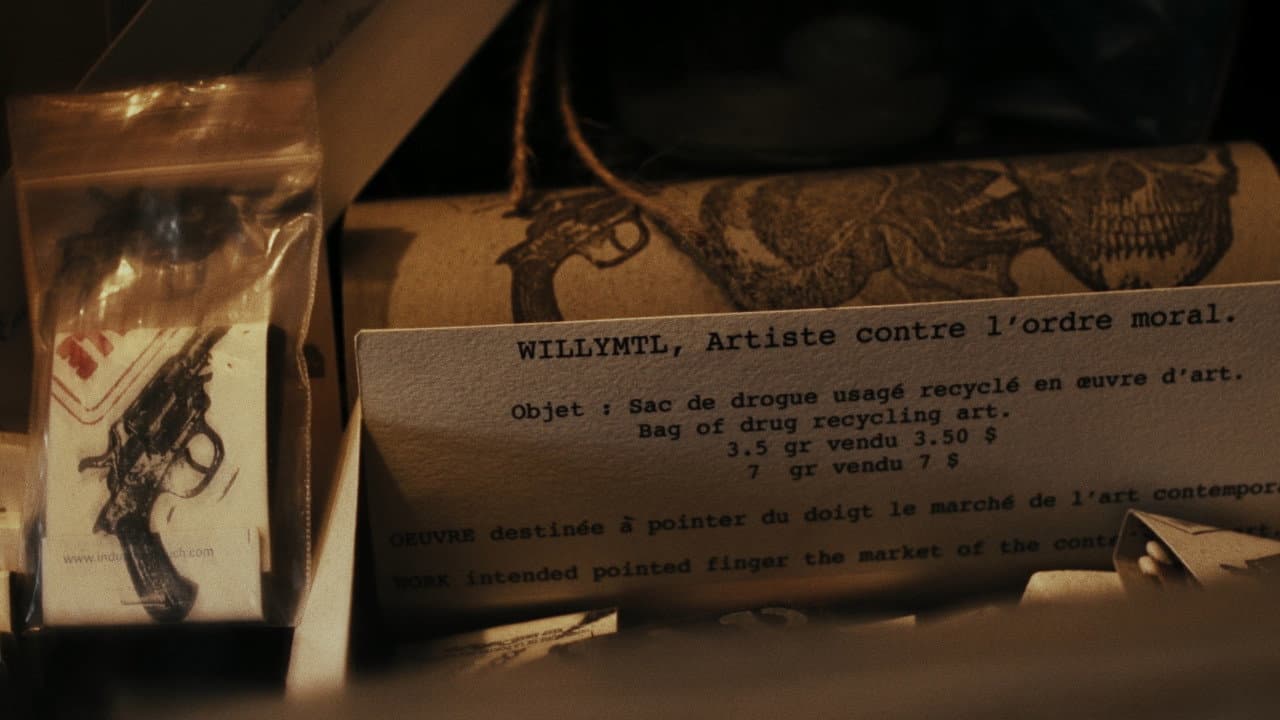 WILLYMTL, Artiste contre l'ordre moral.
Objet : Sac de drogue usagé recyclé en œuvre d'art.
Bag of drug recycling art.
3.5 gr vendu 3.50 $
7 gr vendu 7 $
OEUVRE destinée à pointer du doigt le marché de l'art
WORK intended pointed finger the market of the